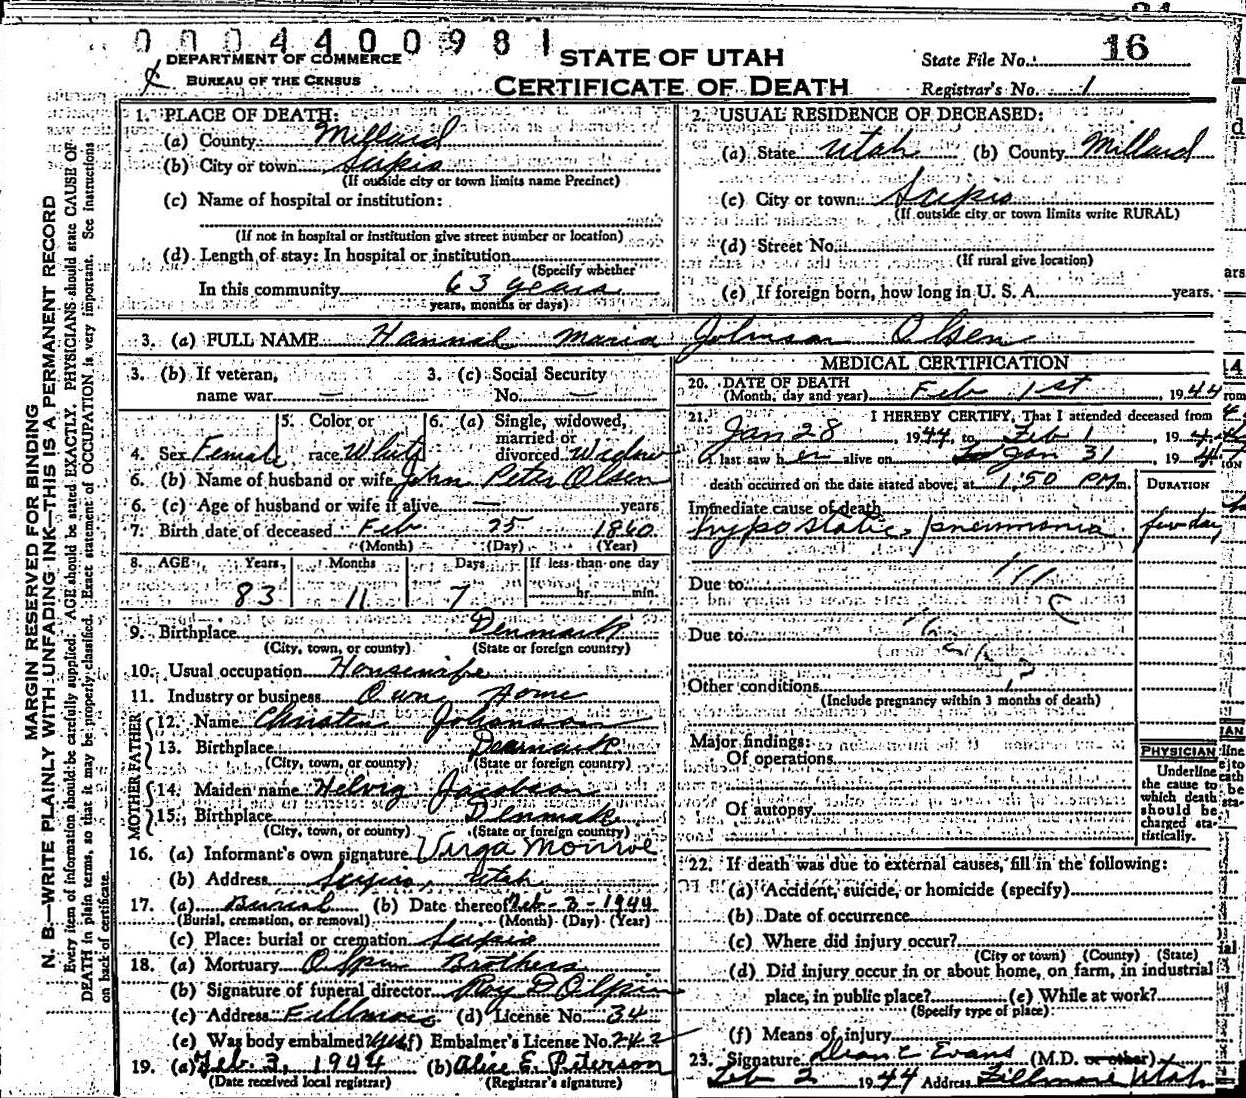 0004400981
DEPARTMENT OF COMMERCE
BUREAU OF THE CENSUS
STATE OF UTAH
CERTIFICATE OF DEATH
State File No. 16
Registrar's No. 1
MARGIN RESERVED FOR BINDING
N. B.—WRITE PLAINLY WITH UNFADING INK—THIS IS A PERMANENT RECORD
Every item of information should be carefully supplied. AGE should be stated EXACTLY. PHYSICIANS should state CAUSE OF
DEATH in plain terms, so that it may be properly classified. Exact statement of OCCUPATION is very important. See instructions
on back of certificate.
1. PLACE OF DEATH:
(a) County Millard
(b) City or town Scipio
(If outside city or town limits name Precinct)
(c) Name of hospital or institution:
(If not in hospital or institution give street number or location)
(d) Length of stay: In hospital or institution
(Specify whether
In this community 63 years
years, months or days)
2. USUAL RESIDENCE OF DECEASED:
(a) State Utah (b) County Millard
(c) City or town Scipio
(If outside city or town limits write RURAL)
(d) Street No.
(If rural give location)
(e) If foreign born, how long in U. S. A. years.
3. (a) FULL NAME Hannah Maria Johnson Olsen
3. (b) If veteran,
name war —
3. (c) Social Security
No. —
4. Sex Female
5. Color or
race White
6. (a) Single, widowed,
married or
divorced Widow
6. (b) Name of husband or wife John Peter Olsen
6. (c) Age of husband or wife if alive — years
7. Birth date of deceased Feb 25 1860
(Month) (Day) (Year)
8. AGE Years Months Days If less than one day
83 11 7 hr. min.
9. Birthplace Denmark
(City, town, or county) (State or foreign country)
10. Usual occupation Housewife
11. Industry or business Own Home
FATHER
12. Name Christen Johanson
13. Birthplace Denmark
(City, town, or county) (State or foreign country)
MOTHER
14. Maiden name Helvig Jacobson
15. Birthplace Denmark
(City, town, or county) (State or foreign country)
16. (a) Informant's own signature Virga Monroe
(b) Address Scipio, Utah
17. (a) Burial (b) Date thereof Feb-3-1944
(Burial, cremation, or removal) (Month) (Day) (Year)
(c) Place: burial or cremation Scipio
18. (a) Mortuary Olpin Brothers
(b) Signature of funeral director Roy D Olpin
(c) Address Fillmore (d) License No. 34
(e) Was body embalmed yes (f) Embalmer's License No. 242
19. (a) Feb. 3, 1944 (b) Alice E. Peterson
(Date received local registrar) (Registrar's signature)
MEDICAL CERTIFICATION
20. DATE OF DEATH
(Month, day and year) Feb 1st, 1944
21. I HEREBY CERTIFY, That I attended deceased from
Jan 28, 1944 to Feb 1, 1944
I last saw her alive on Jan 31, 1944
death occurred on the date stated above, at 1:50 P.m.
DURATION
Immediate cause of death
hypostatic pneumonia few days
Due to
Due to
Other conditions
(Include pregnancy within 3 months of death)
Major findings:
Of operations
Of autopsy
PHYSICIAN
Underline
the cause to
which death
should be
charged sta-
tistically.
22. If death was due to external causes, fill in the following:
(a) Accident, suicide, or homicide (specify)
(b) Date of occurrence
(c) Where did injury occur?
(City or town) (County) (State)
(d) Did injury occur in or about home, on farm, in industrial
place, in public place? (e) While at work?
(Specify type of place)
(f) Means of injury
23. Signature Dean C Evans (M.D. or other)
Feb 2 1944 Address Fillmore Utah